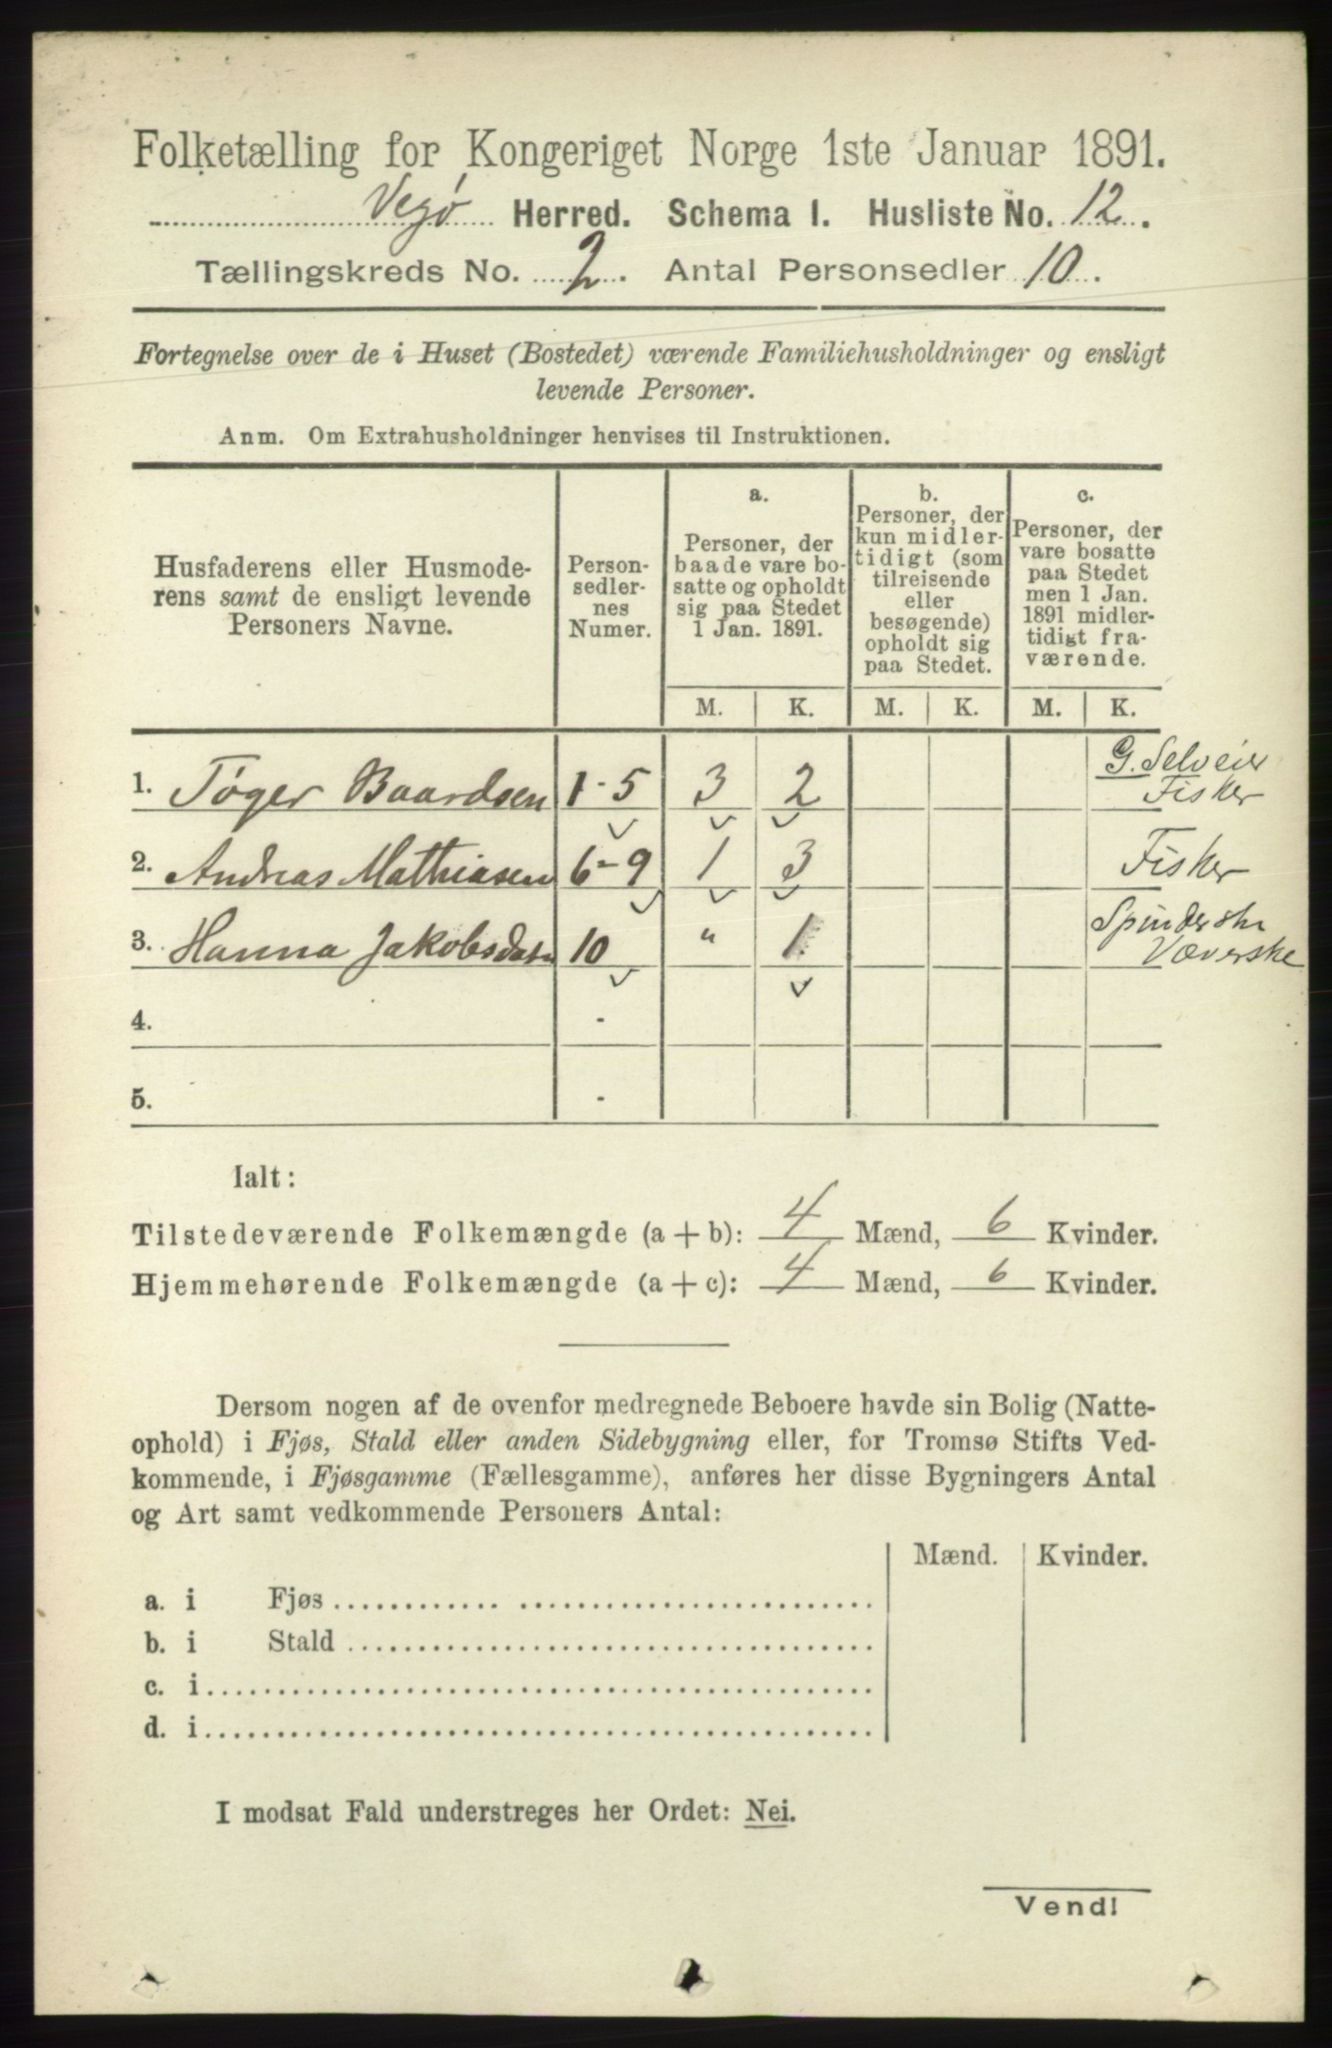 Folketælling for Kongeriget Norge 1ste Januar 1891.
Vegø Herred. Schema I. Husliste No. 12.
Tællingskreds No. 2. Antal Personsedler 10.
Fortegnelse over de i Huset (Bostedet) værende Familiehusholdninger og ensligt
levende Personer.
Anm. Om Extrahusholdninger henvises til Instruktionen.
Husfaderens eller Husmode-
rens samt de ensligt levende
Personers Navne.
Person-
sedler-
nes
Numer.
a.
Personer, der
baade vare bo-
satte og opholdt
sig paa Stedet
1 Jan. 1891.
b.
Personer, der
kun midler-
tidigt (som
tilreisende
eller
besøgende)
opholdt sig
paa Stedet.
c.
Personer, der
vare bosatte
paa Stedet
men 1 Jan.
1891 midler-
tidigt fra-
værende.
M. K. M. K. M. K.
1. Tøger Baardsen 1-5 3 2 G. Selveier
Fisker
2. Andreas Mathiasen 6-9 1 3 Fisker
3. Hanna Jakobsdatr 10 " 1 Spinderske
Væverske
4. -
5. -
Ialt:
Tilstedeværende Folkemængde (a + b): 4 Mænd, 6 Kvinder.
Hjemmehørende Folkemængde (a + c): 4 Mænd, 6 Kvinder.
Dersom nogen af de ovenfor medregnede Beboere havde sin Bolig (Natte-
ophold) i Fjøs, Stald eller anden Sidebygning eller, for Tromsø Stifts Ved-
kommende, i Fjøsgamme (Fællesgamme), anføres her disse Bygningers Antal
og Art samt vedkommende Personers Antal:
Mænd. Kvinder.
a. i Fjøs
b. i Stald
c. i
d. i
I modsat Fald understreges her Ordet: Nei.
Vend!